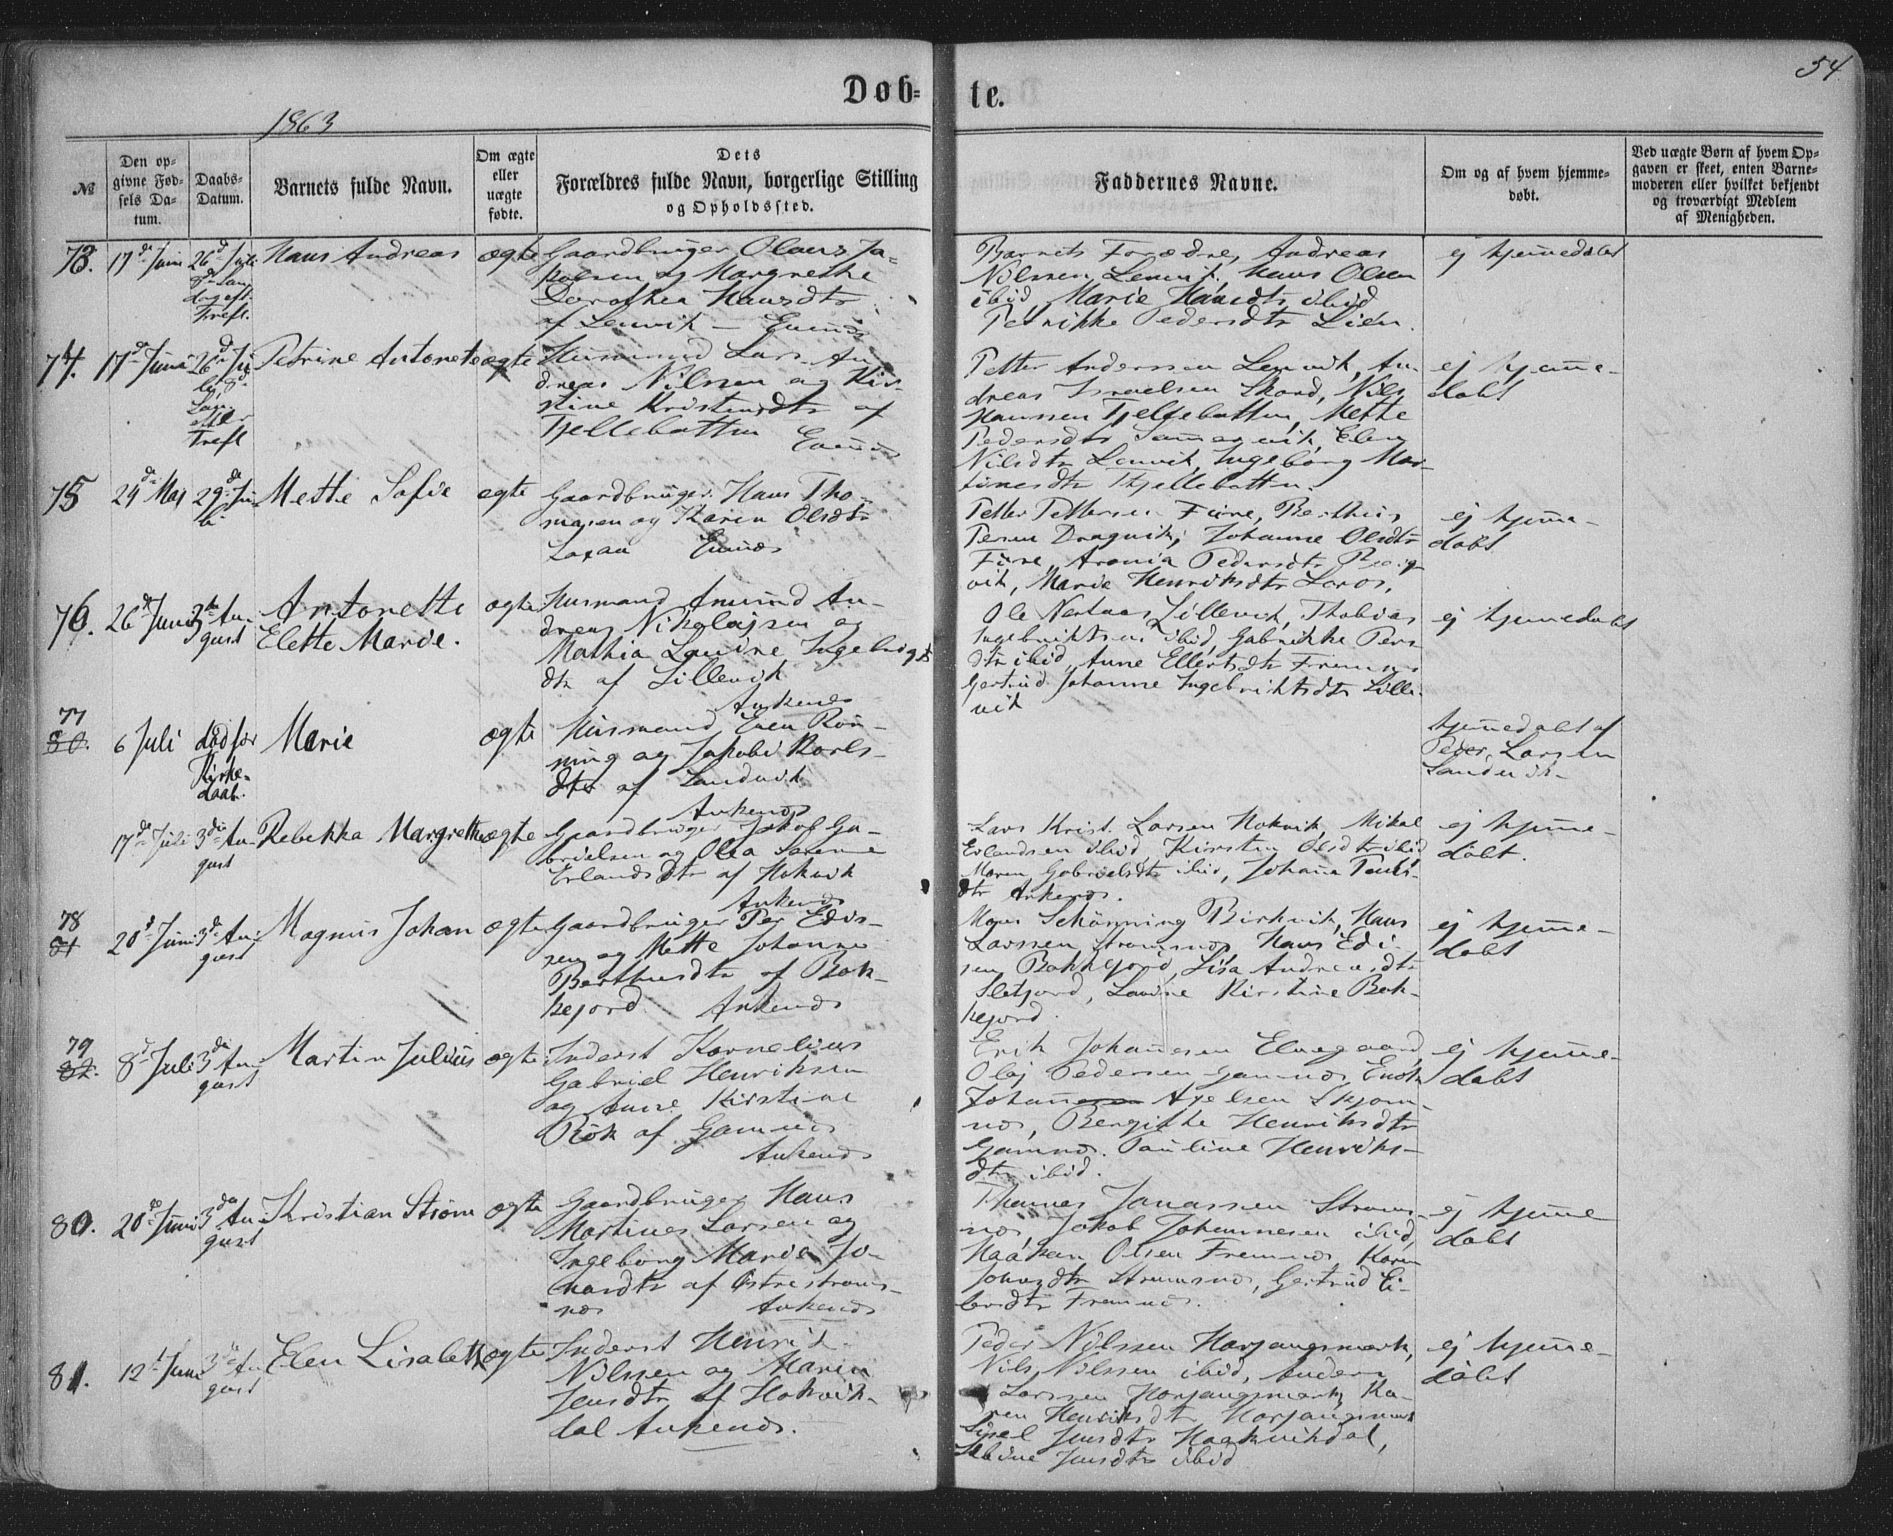 54
Døb=
te.
1863
№
Den op-
givne Fød-
sels Da-
tum.
Daabs-
Datum.
Barnets fulde Navn.
Om ægte
eller
uægte
fødte.
Dets
Forældres fulde Navn, borgerlige Stilling
og Opholdssted.
Faddernes Navne.
Om og af hvem hjemme-
døbt.
Ved uægte Børn af hvem Op-
gaven er skeet, enten Barne-
moderen eller hvilket bekjendt
og troværdigt Medlem
af Menigheden.
73.
17de Juni
26d Juli
Hans Andreas
ægte
Gaardbruger Olaus Ja-
kobsen og Margrethe
Dorothea Hansdtr
af Lenvik – Evenæs
Barnets Forældre, Andreas
Nilssen Lenvik, Hans Olsen
ibid, Marie Hansdtr ibid
Petrikke Pedersdtr Lien.
ej hjemmedøbt
74.
17de Juni
26d Ju-
li 8d
S. e.
Trefl
Petrine Antonete
ægte
Husmand Lars An-
dreas Nilssen og Kir-
stine Kristensdtr af
Fjellebotten Evenæs
Petter Anderssen Lenvik, An-
dreas Israelsen Skord, Nils
Hanssen Fjellebotten, Mette
Pedersdtr Sammenvik, Elen
Nilsdtr Lenvik, Ingeborg Mar-
tinesdtr Fjellebotten.
ej hjemme-
døbt
75
24de Maj
29de Ju-
li
Mette Sofie
ægte
Gaardbruger Hans Tho-
masen og Karen Olsdtr
Evenæs
Petter Pettersen Fiine, Berthin
Johanne Olsdtr
Fiine, Aronia Pedersdtr
vik, Marie Henriksdtr
ej hjemme-
døbt
76.
26de Juni
3die Au-
gust
Antonette
Elette Marie.
ægte
Husmand Amund An-
dreas Nikolajsen og
Mathia Lavine Ingebrigts
dtr af Lillevik
Ankenes
Ole Lillevik, Thobias
Ingebriktsen ibid, Gabrikke Pers
dtr ibid, Anne Ellertsdtr Fremnes
Gertrud Johanne Ingebriktsdtr Lille-
vik
ej hjemmedøbt
77
80.
6 Juli
død før
Kirke-
daab.
Marie
ægte
Husmand Even Røn-
ning og Jakobi Karls-
dtr af Sandvik
Ankenæs
hjemmedøbt af
Peder Larsen
Sandvik
17de Juli
3die Au-
gust
Rebekka Margrethe
ægte
Gaardbruger Jakob Ga-
brielsen og Olea Sarenne
Erlandsdtr af Hokvik
Ankenæs
Lars Krist. Larsen Hokvik, Mikal
Erlandsen ibid, Kirsten Olsdtr ibid
Maren Gabrielsdtr ibid, Johanna Pauls-
dtr Ankenæs.
ej hjemme-
døbt.
78
81
20d Juni
3die Au-
gust
Magnus Johan
ægte
Gaardbruger Per Edis-
sen og Mette Johanna
Berthusdtr af Bok-
kejord Ankenæs
Mons Schønning Birkvik, Hans
Larssen Strømsnæs, Hans Edi-
sen Bokkejord, Lisa Andreasdtr
Sletjord, Lavine Kirstine Bok-
kejord.
ej hjemme-
døbt
79
82.
8d Juli
3die Au-
gust
Martin Julius
ægte
Inderst Kornelius
Gabriel Henriksen
og Anne Kirstine
Røk af Gamnæs
Ankenæs
Erik Johannesen Elvegaard
Olaj Pedersen Gamnæs, Enok
Johan Axelsen Skjom-
næs, Bergithe Henriksdtr
Gamnæs, Pauline Henriks-
dtr ibid.
ej hjemme-
døbt
80.
20de Juni
3die Au-
gust
Kristian Strøm
ægte
Gaardbruger Hans
Martinus Larsen og
Ingeborg Marie Jo-
nasdtr af Østrestrøms-
næs Ankenæs
Thomas Jonassen Strøms-
næs, Jakob Johannesen ibid,
Haakan Olsen Fremnæs, Karen
Jonasdtr Strømsnæs, Gertrud Ei-
lersdtr Fremnæs.
ej hjemme
døbt
81.
12t Juni
3die Au-
gust
Elen Lisabeth
ægte
Inderst Henrik
Nilssen og Maren
Jensdtr af Hokvik-
dal Ankenæs.
Peder Nilssen Harjangsmark,
Nils Nilssen ibid, Anders
Larssen Harjangsmark, Ka-
ren Henriksdtr Harjangsmark
Sissel Jensdtr Haakvikdal,
Sabine Jensdtr ibid
ej hjemme-
døbt